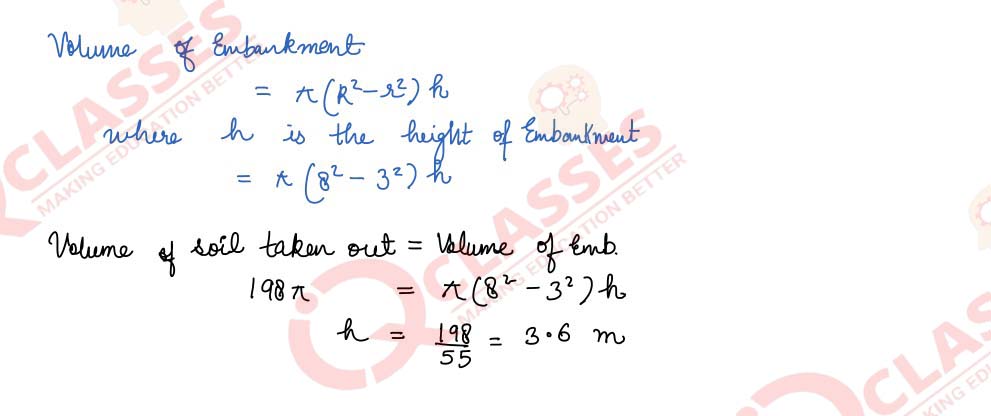 Volume of Embankment
= π(R²−r²)h
where h is the height of Embankment
= π(8²−3²)h
Volume of soil taken out = Volume of Emb.
198π = π(8²−3²)h
h = 198/55 = 3.6 m
QCLASSES
MAKING EDUCATION BETTER
QCLASSES
MAKING EDUCATION BETTER
QCLASS
MAKING EDU